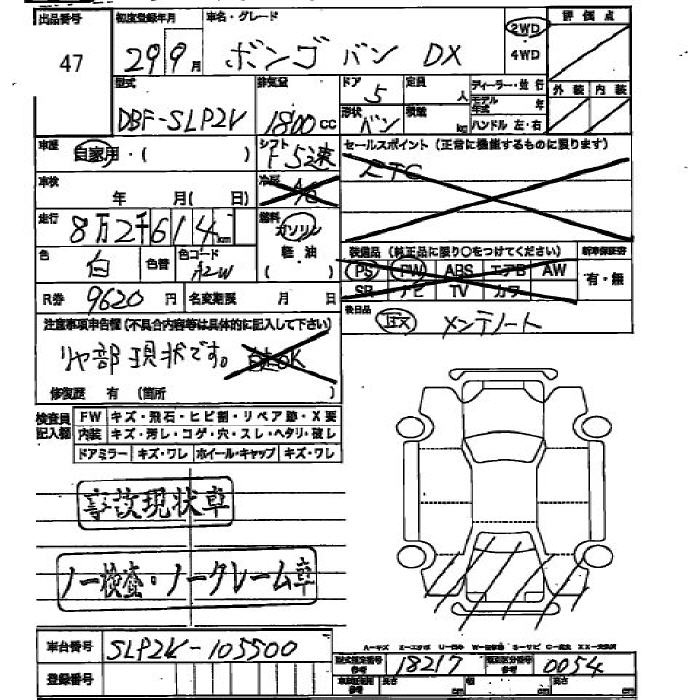 出品番号 初度登録年月 車名・グレード 2WD 評価点
47 29 9月 ボンゴバン DX ・4WD
型式 排気量 ドア 5 定員 人 ディーラー・並行 外装 内装
DBF-SLP2V 1800cc 形状 バン 積載 kg モデル年式 年
ハンドル 左・右
車歴 自家用・( ) シフト F5速 セールスポイント (正常に機能するものに限ります)
ETC
車検 年 月( 日) 冷房 A/C
走行 8万2千614km 燃料 ガソリン
軽油 装備品 (純正品に限り○をつけてください) 新車保証書
色 白 色替 色コード A2W PS PW ABS エアB AW 有・無
SR ナビ TV カワ
R券 9620円 名変期限 月 日
後日品 取説 メンテノート
注意事項申告欄(不具合内容等は具体的に記入して下さい)
リヤ部現状です。 自走OK
修復歴 有 (箇所 )
検査員記入欄 FW キズ・飛石・ヒビ割・リペア跡・X要
内装 キズ・汚レ・コゲ・穴・スレ・ヘタリ・破レ
ドアミラー キズ・ワレ ホイール・キャップ キズ・ワレ
事故現状車
ノー検査・ノークレーム車
車台番号 SLP2V-105500
型式指定番号 18217 類別区分番号 0054
登録番号 長さ cm 幅 cm 高さ cm